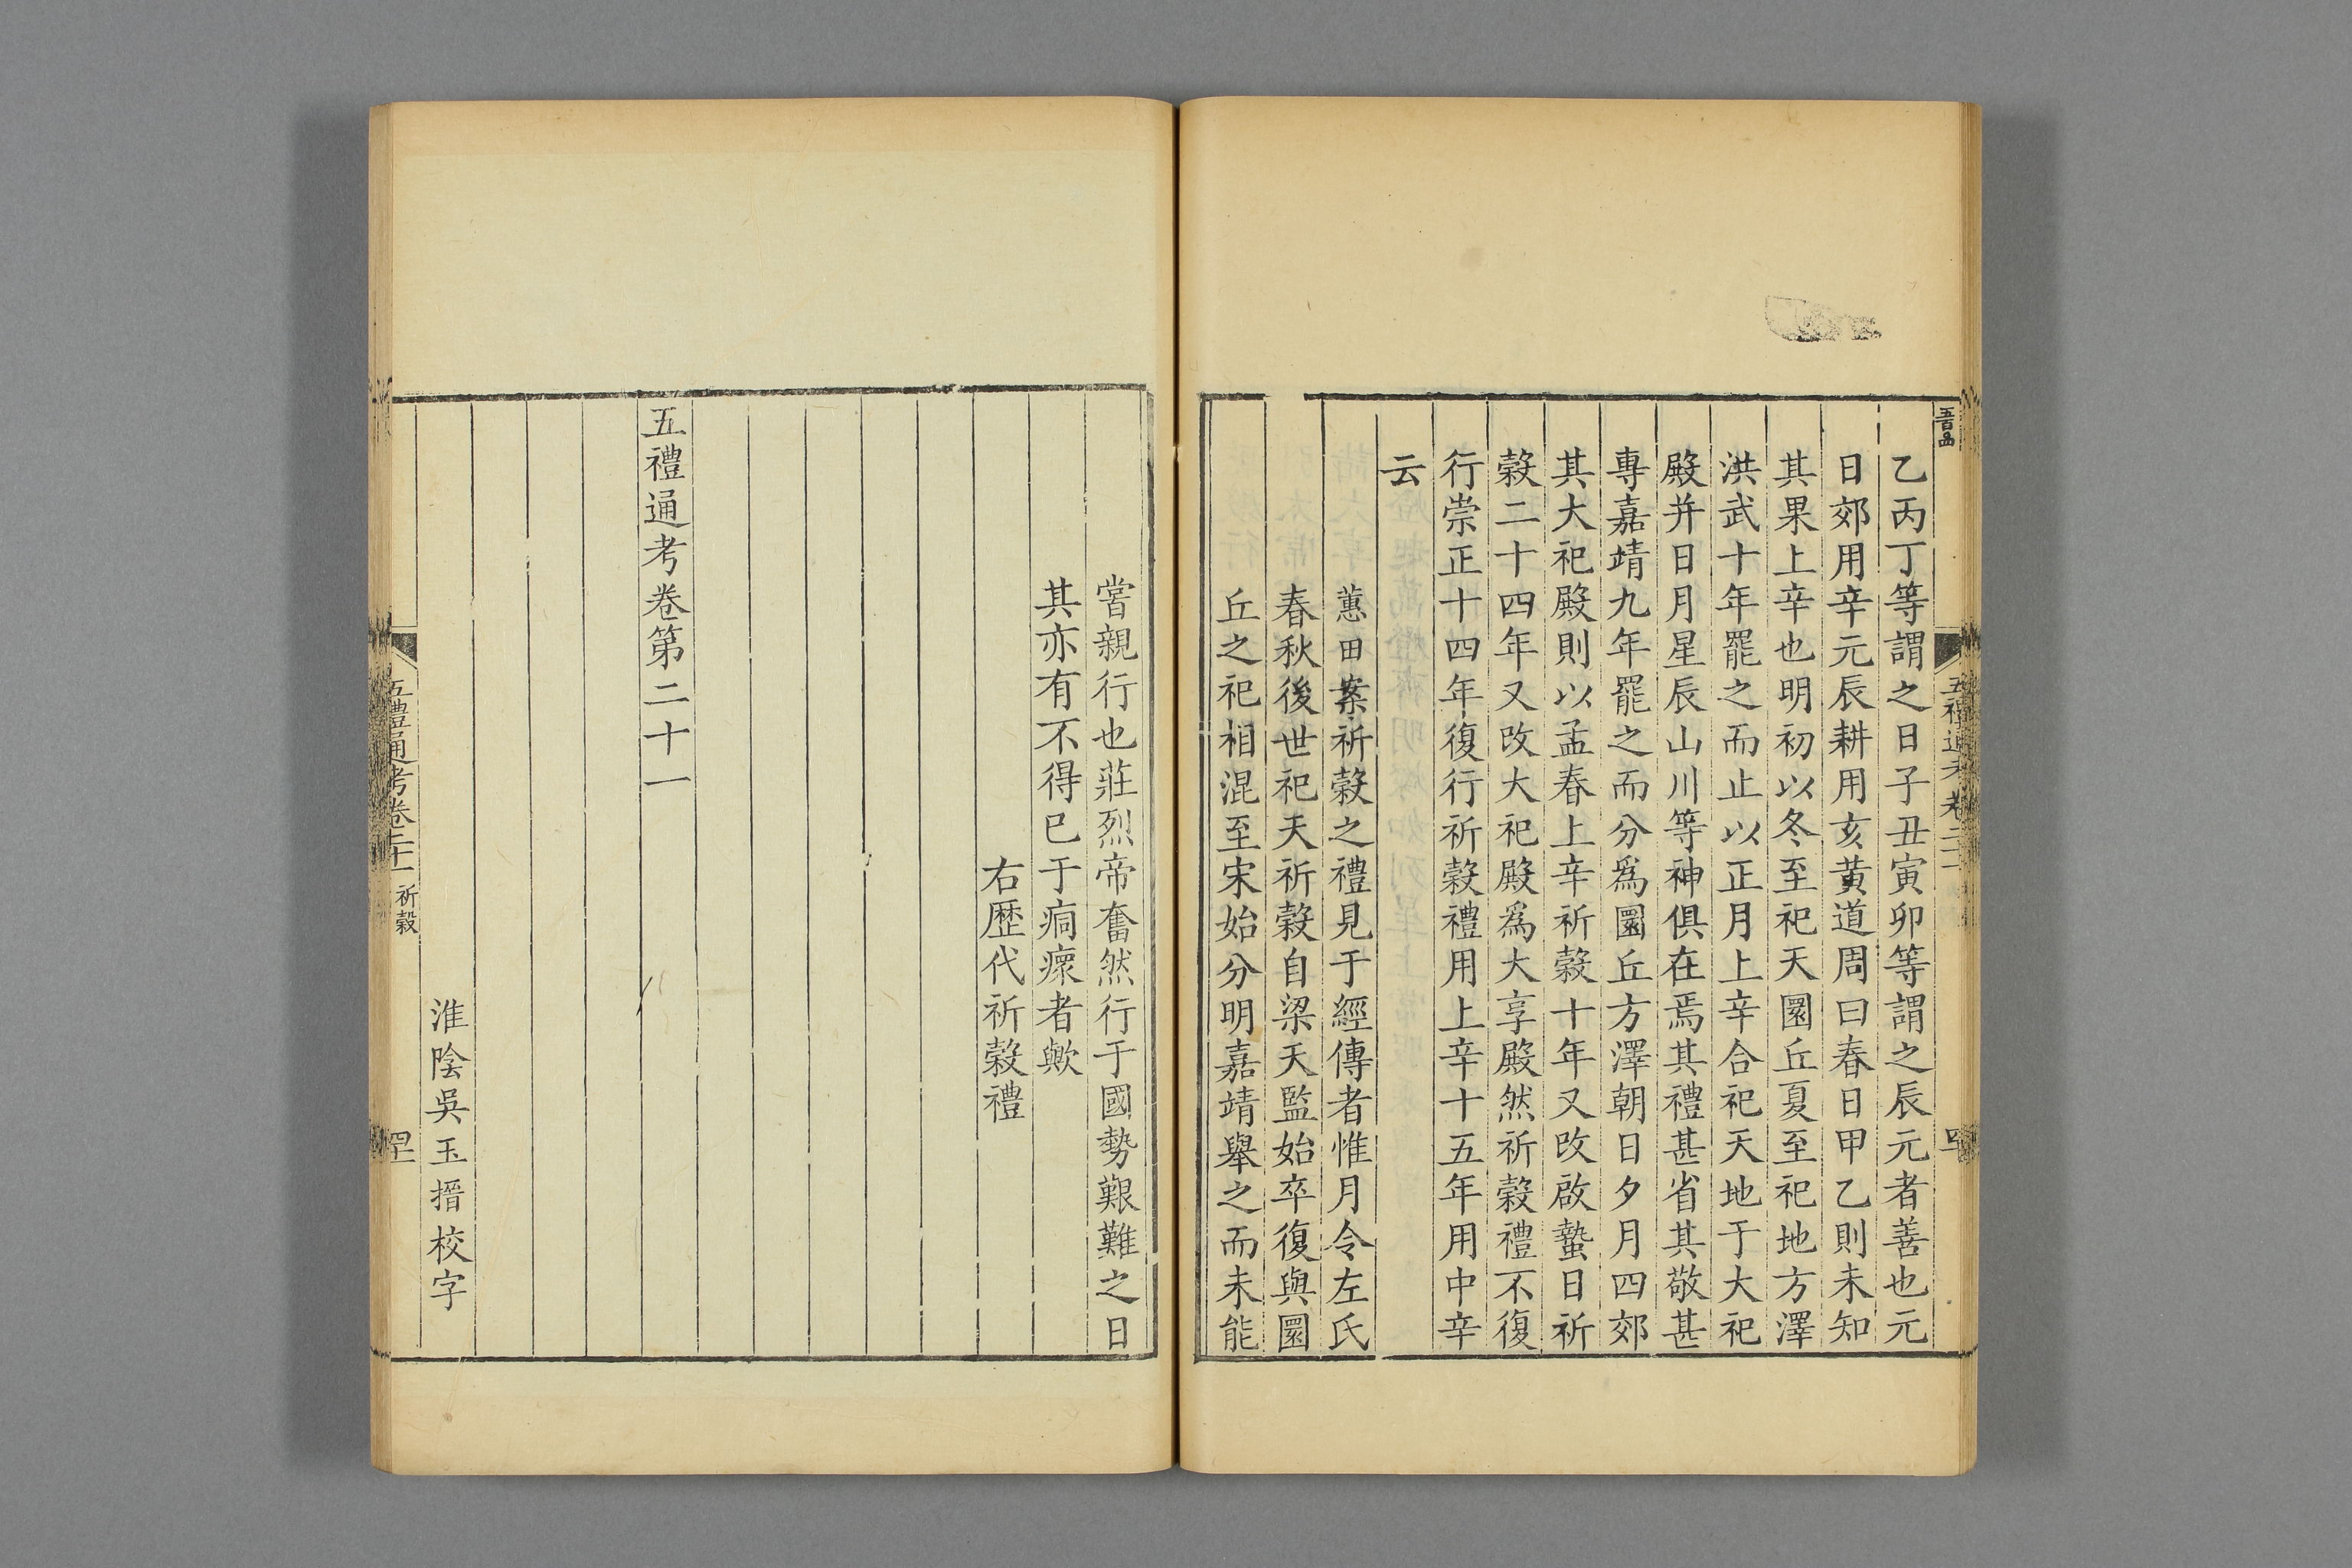 乙丙丁等謂之日子丑寅卯等謂之辰元者善也元
日郊用辛元辰耕用亥黃道周曰春日甲乙則未知
其果上辛也明初以冬至祀天圜丘夏至祀地方澤
洪武十年罷之而止以正月上辛合祀天地于大祀
殿并日月星辰山川等神俱在焉其禮甚省其敬甚
專嘉靖九年罷之而分爲圜丘方澤朝日夕月四郊
其大祀殿則以孟春上辛祈穀十年又改啟蟄日祈
穀二十四年又改大祀殿爲大享殿然祈穀禮不復
行崇正十四年復行祈穀禮用上辛十五年用中辛
云
蕙田案祈穀之禮見于經傳者惟月令左氏
春秋後世祀天祈穀自梁天監始卒復與圜
丘之祀相混至宋始分明嘉靖舉之而未能
嘗親行也莊烈帝奮然行于國勢艱難之日
其亦有不得已于痌瘝者歟
右歷代祈穀禮
五禮通考卷第二十一
淮陰吳玉搢校字
五禮通考卷二十一 祈穀